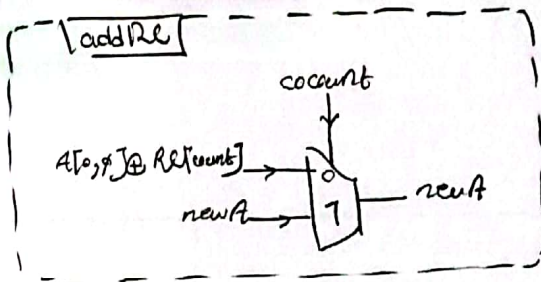 addRC
cocount
A[0,0]⊕ RC[count]
0
newA
1
newA